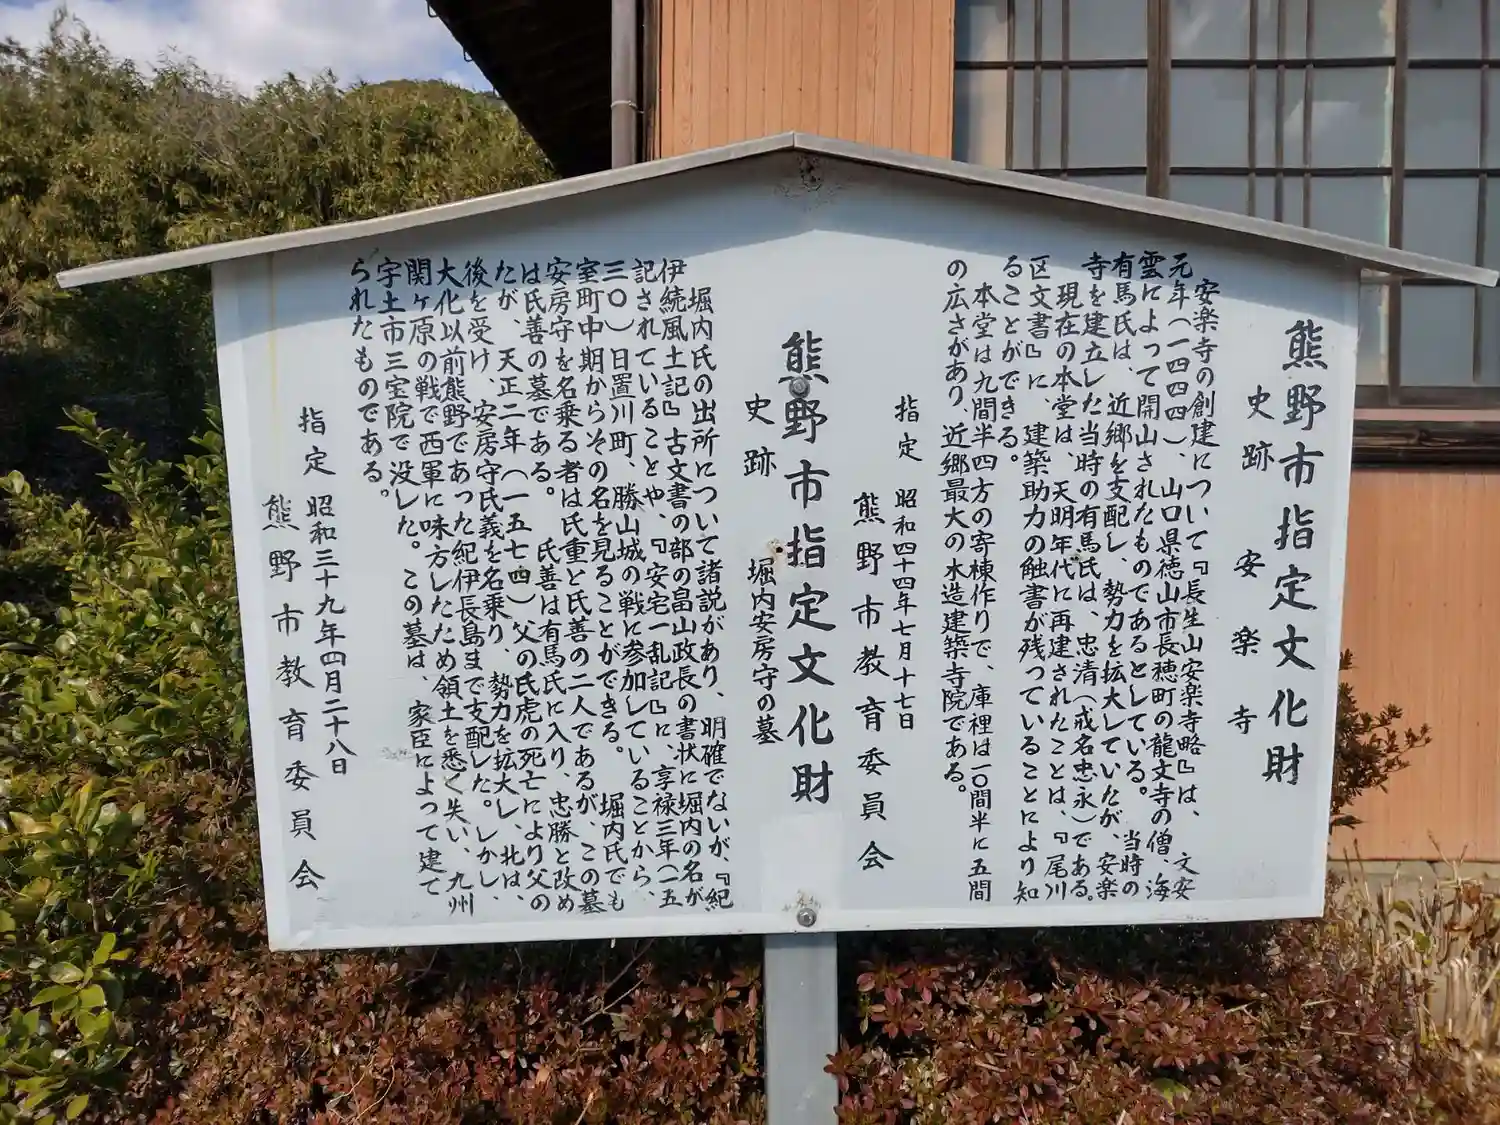 熊野市指定文化財
史跡　安楽寺
安楽寺の創建について『長生山安楽寺略』は、文安
元年（一四四四）、山口県徳山市長穂町の龍文寺の僧、海
雲によって開山されたものであるとしている。当時の
有馬氏は、近郷を支配し、勢力を拡大していたが、安楽
寺を建立した当時の有馬氏は、忠清（戒名忠永）である。
現在の本堂は、天明年代に再建されたことは、『尾川
区文書』に、建築助力の触書が残っていることにより知
ることができる。
本堂は九間半四方の寄棟作りで、庫裡は一〇間半に五間
の広さがあり、近郷最大の木造建築寺院である。
指定　昭和四十四年七月十七日
熊野市教育委員会
熊野市指定文化財
史跡　堀内安房守の墓
堀内氏の出所について諸説があり、明確でないが、『紀
伊続風土記』古文書の部の畠山政長の書状に堀内の名が
記されていることや、『安宅一乱記』に、享禄三年（一五
三〇）日置川町、勝山城の戦に参加していることから、
室町中期からその名を見ることができる。堀内氏でも
安房守を名乗る者は氏重と氏善の二人であるが、この墓
は氏善の墓である。氏善は有馬氏に入り、忠勝と改め
たが、天正二年（一五七四）父の氏虎の死亡により父の
後を受け、安房守氏義を名乗り、勢力を拡大し、北は、
大化以前熊野であった紀伊長島まで支配した。しかし、
関ヶ原の戦で西軍に味方したため領土を悉く失い、九州
宇土市三宝院で没した。この墓は、家臣によって建て
られたものである。
指定　昭和三十九年四月二十八日
熊野市教育委員会